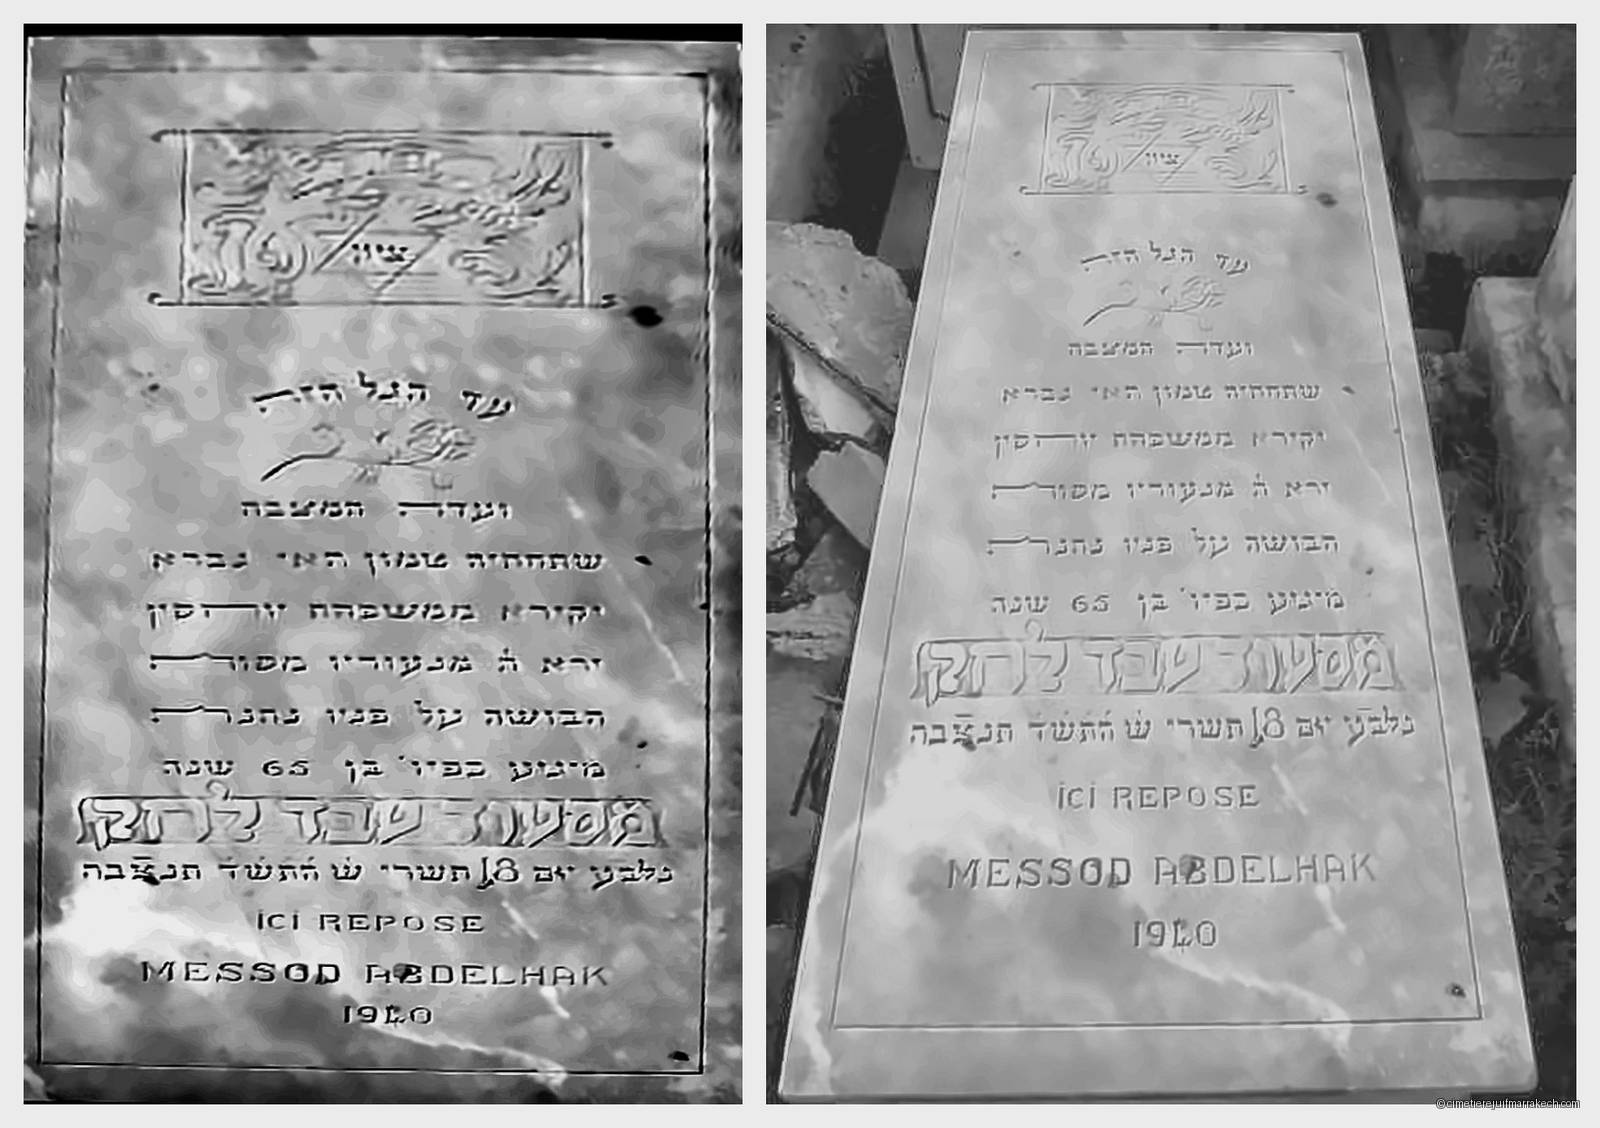 ציון
עד הגל הזה
ועדה המצבה
שתחתיה טמון האי גברא
יקירא ממשפחת
ירא ה׳ מנעוריו מסורת
הבושה על פניו נהנרת
מיגיע כפיו׳ בן 65 שנה
מסעוד עבד לחק
נלבע יום 18 תשרי ש׳ התשד תנצבה
ICI REPOSE
MESSOD ABDELHAK
ציון
עד הגל הזה
ועדה המצבה
שתחתיה טמון האי גברא
יקירא ממשפחת
ירא ה׳ מנעוריו מסורת
הבושה על פניו נהנרת
מיגיע כפיו׳ בן 65 שנה
מסעוד עבד לחק
נלבע יום 18 תשרי ש׳ התשד תנצבה
ICI REPOSE
MESSOD ABDELHAK
©cimetierejuifmarrakech.com